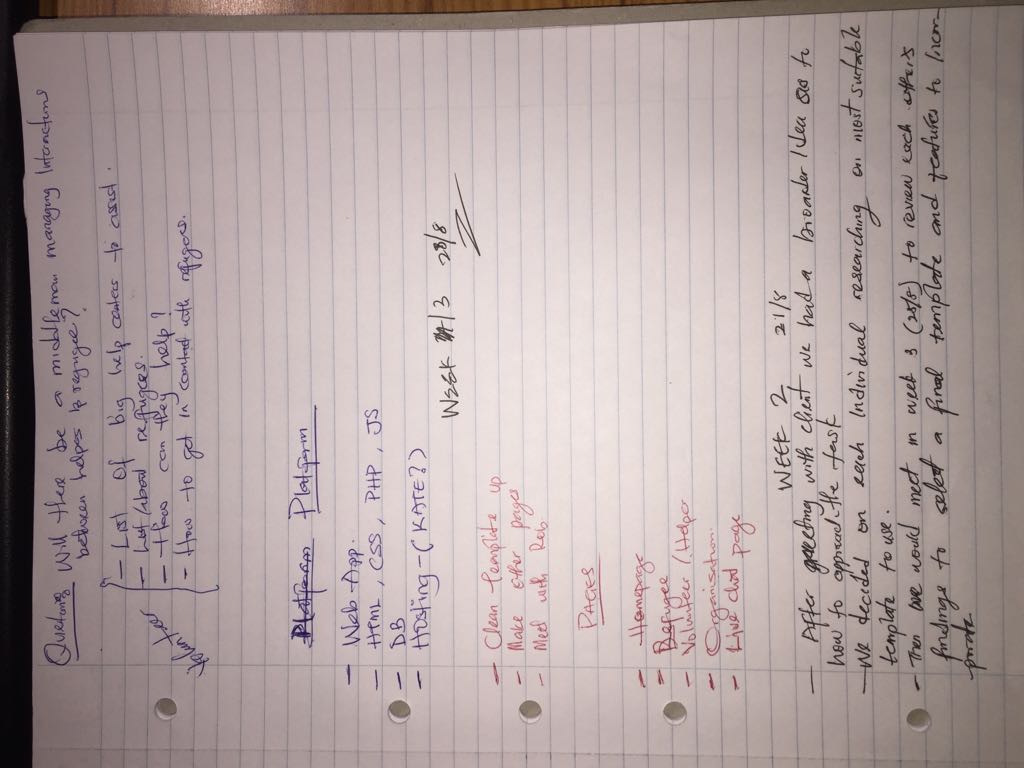 Questions Will there be a middleman managing Interactions
between helpes & regugee?
Volunteer
- List of big help centers to assist.
- List/about refugees.
- How can they help?
- How to get in contact with refugees.
Platform Platform
- Web App.
- HTML, CSS, PHP, JS
- DB
- Hosting - (KATE?)
WEEK /3 28/8
- Clean template up
- Make other pages
- Meet with Rob
PAGES
- Homepage
- Refugee
- Volunteer / Helper
- Organisation.
- Live chat page
WEEK 2 21/8
- After greeting with client we had a broader Idea as to
how to approach the task
- We decided on each Individual researching on most suitable
template to use.
- Then we would meet in week 3 (28/8) to review each other's
findings to select a final template and features to Incor-
porate